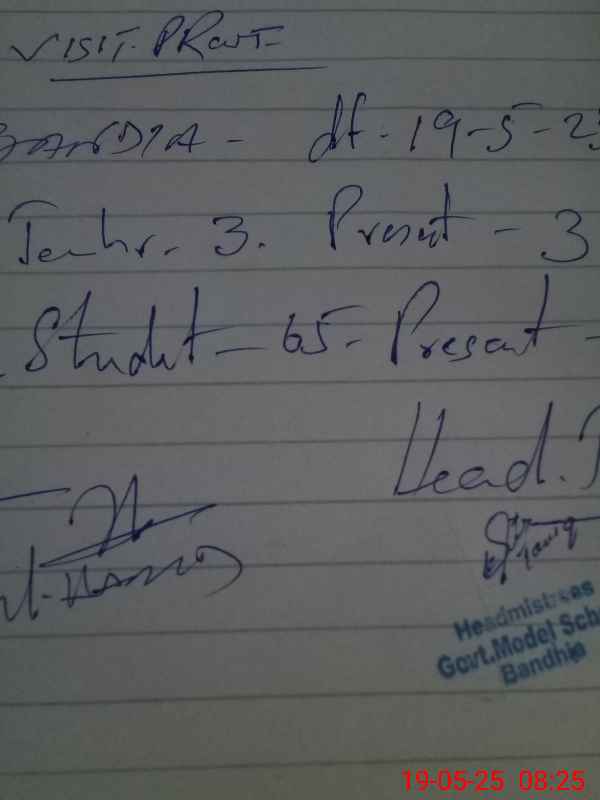 VISIT. PRovt-
BANDIA - dt. 19-5-25
Teachr. 3. Present - 3
Student - 65 - Present -
Head. T
Headmistress
Govt.Model Sch
Bandhia
19-05-25 08:25